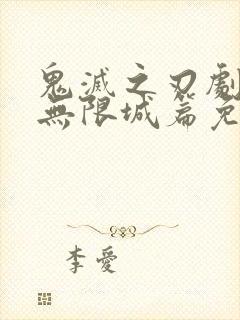 鬼滅之刃劇
無限城篇免
李愛